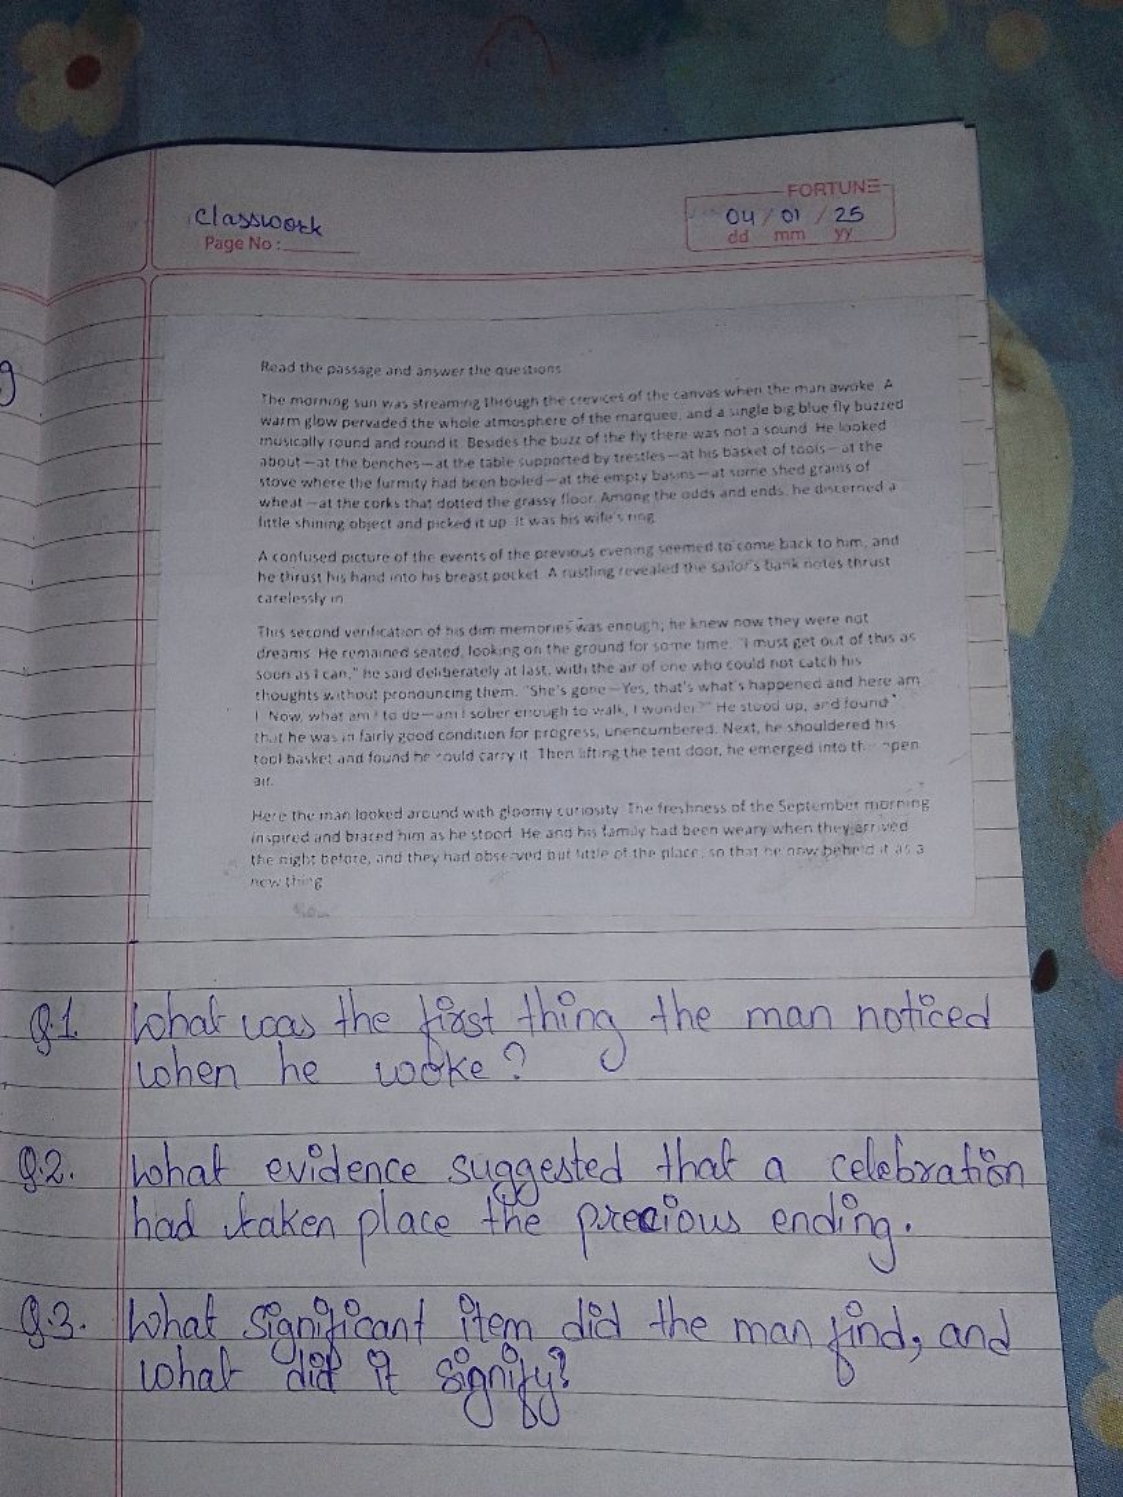 FORTUNE
Classwork
04 / 01 / 25
Page No :
dd mm yy
g
Read the passage and answer the questions
The morning sun was streaming through the crevices of the canvas when the man awoke. A
warm glow pervaded the whole atmosphere of the marquee, and a single big blue fly buzzed
musically round and round it. Besides the buzz of the fly there was not a sound. He looked
about—at the benches—at the table supported by trestles—at his basket of tools—at the
stove where the furmity had been boiled—at the empty basins—at some shed grains of
wheat—at the corks that dotted the grassy floor. Among the odds and ends, he discerned a
little shining object and picked it up. It was his wife's ring
A confused picture of the events of the previous evening seemed to come back to him, and
he thrust his hand into his breast pocket. A rustling revealed the sailor's bank notes thrust
carelessly in
This second verification of his dim memories was enough; he knew now they were not
dreams. He remained seated, looking on the ground for some time. "I must get out of this as
soon as I can," he said deliberately at last, with the air of one who could not catch his
thoughts without pronouncing them. "She's gone—Yes, that's what's happened and here am
I. Now, what am I to do—am I sober enough to walk, I wonder?" He stood up, and found
that he was in fairly good condition for progress, unencumbered. Next, he shouldered his
tool basket and found he could carry it. Then lifting the tent door, he emerged into the open
air.
Here the man looked around with gloomy curiosity. The freshness of the September morning
inspired and braced him as he stood. He and his family had been weary when they arrived
the night before, and they had observed but little of the place, so that he now beheld it as a
new thing
Q.1 What was the first thing the man noticed
when he wooke?
Q.2. What evidence suggested that a celebration
had taken place the precious ending.
Q.3. What significant item did the man find, and
what did it signify?